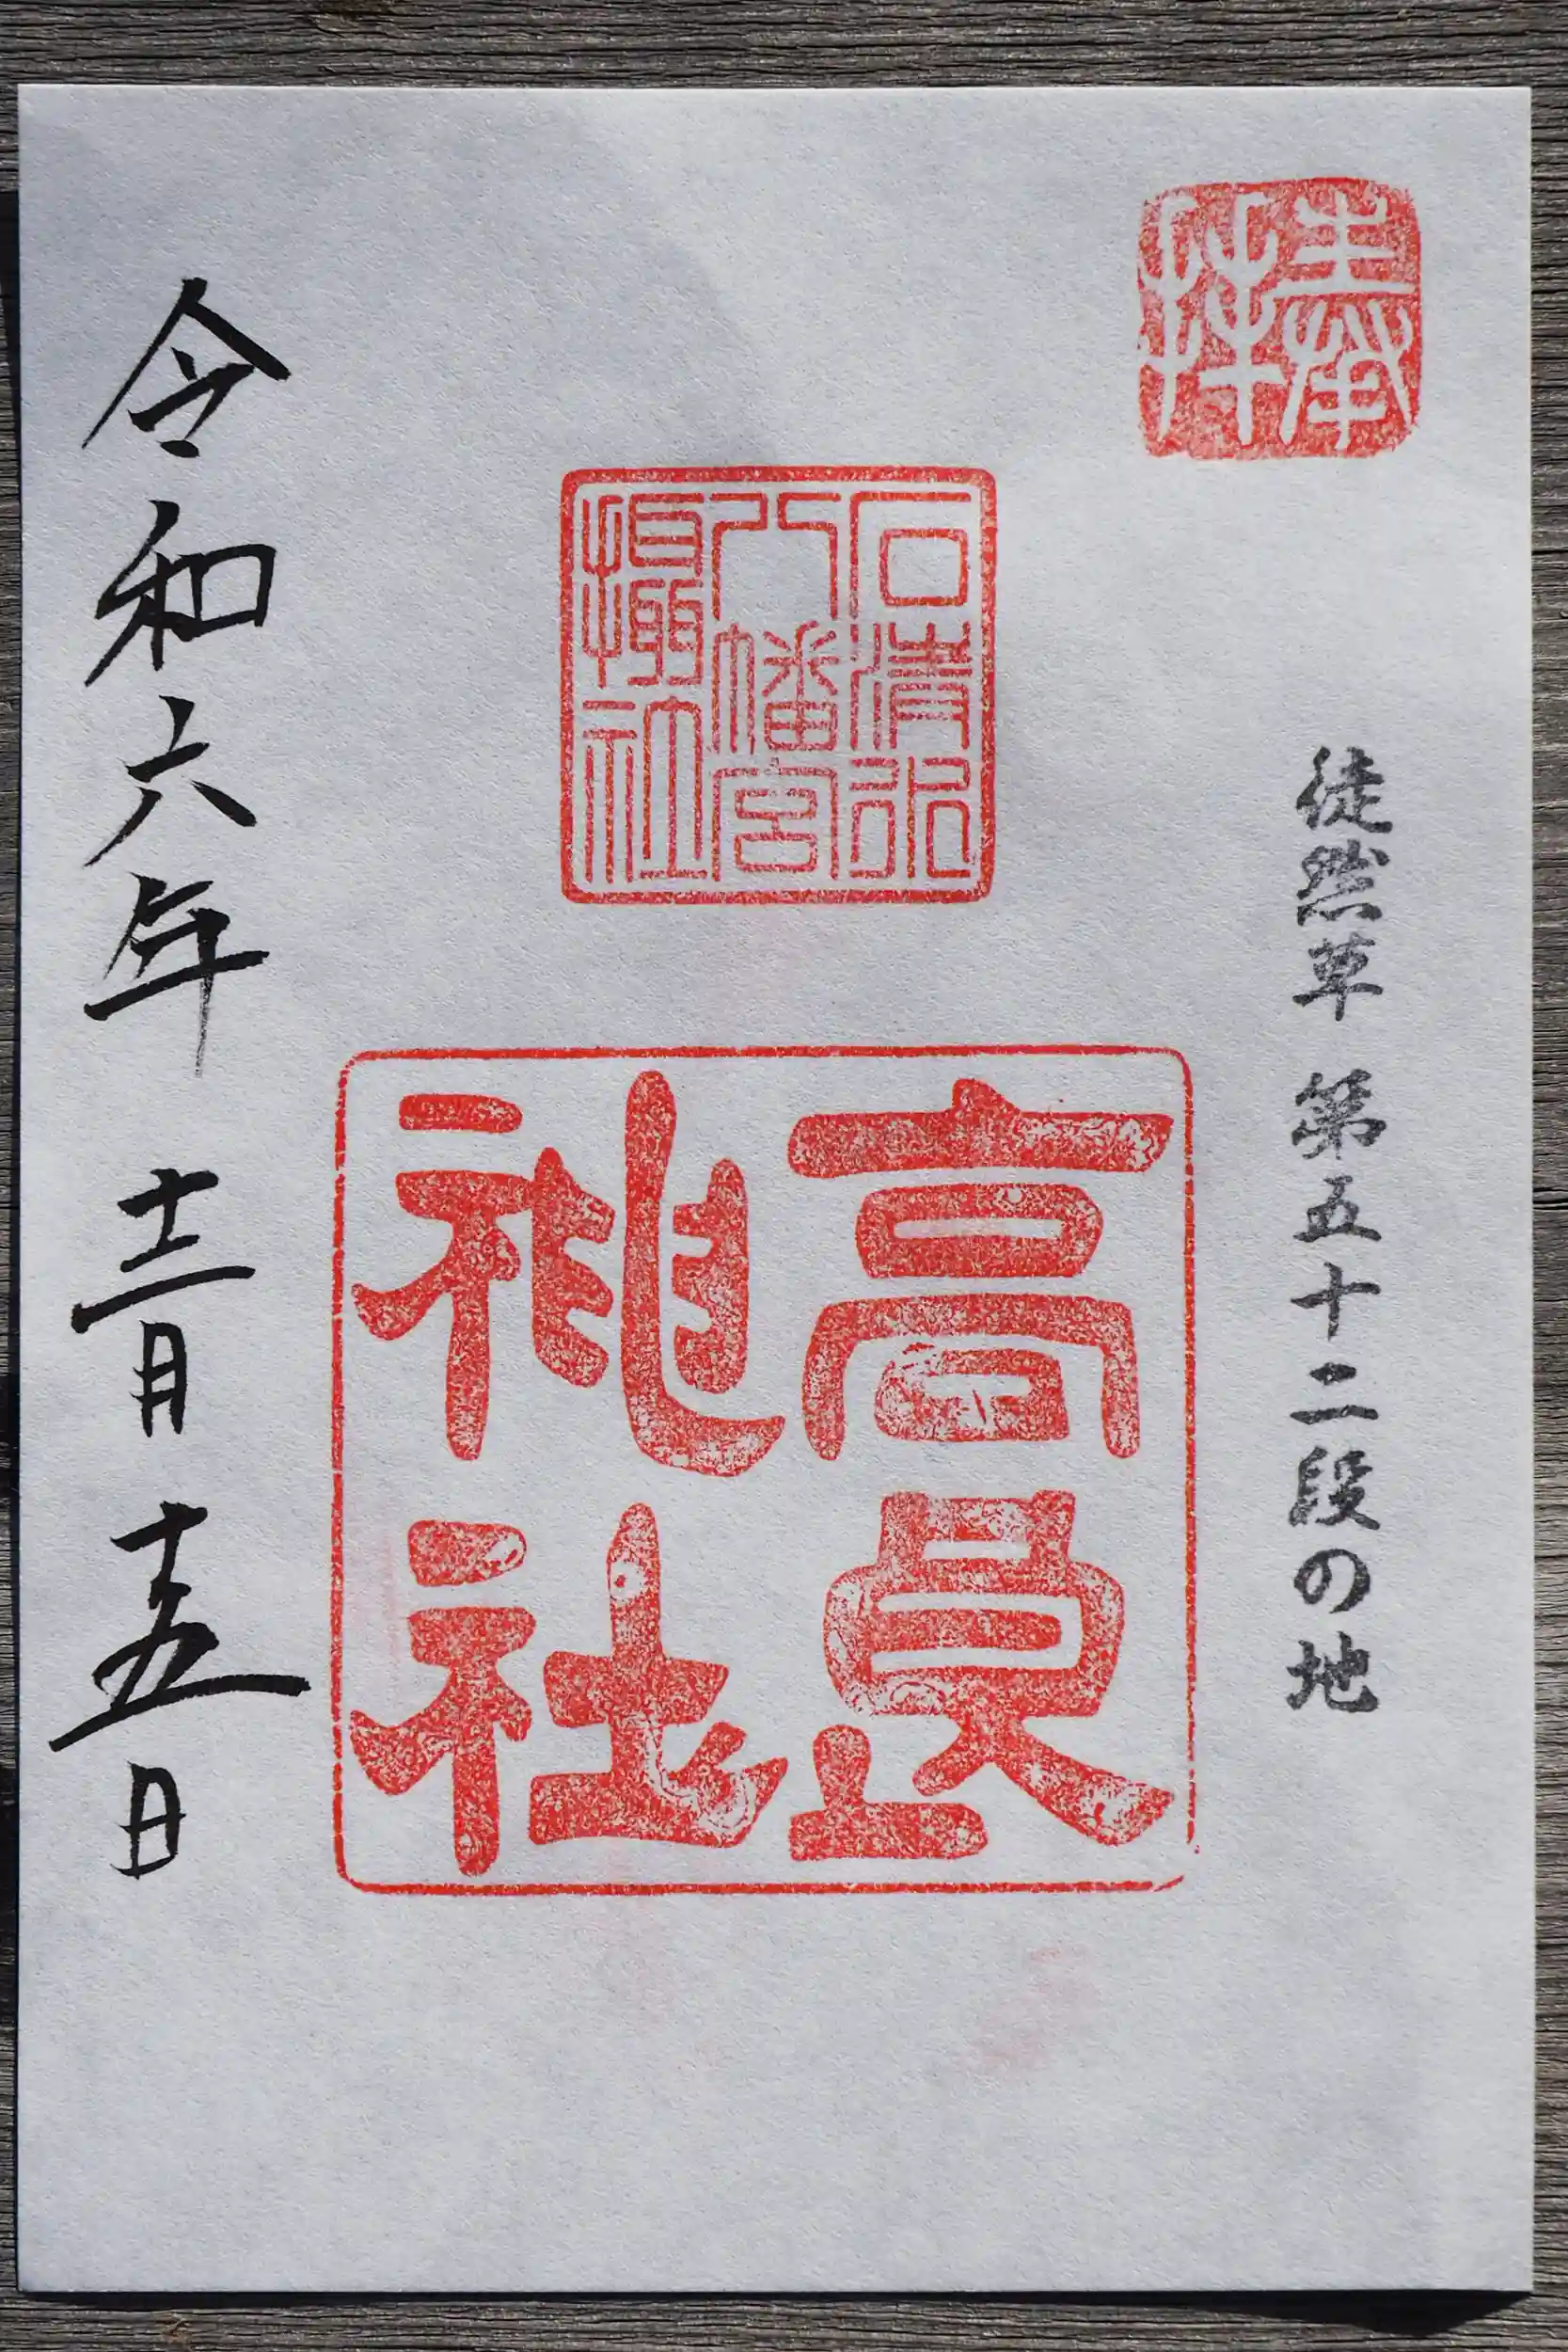 奉拝
徒然草 第五十二段の地
石清水
八幡宮
攝社
高良
神社
令和六年 十二月 十五日